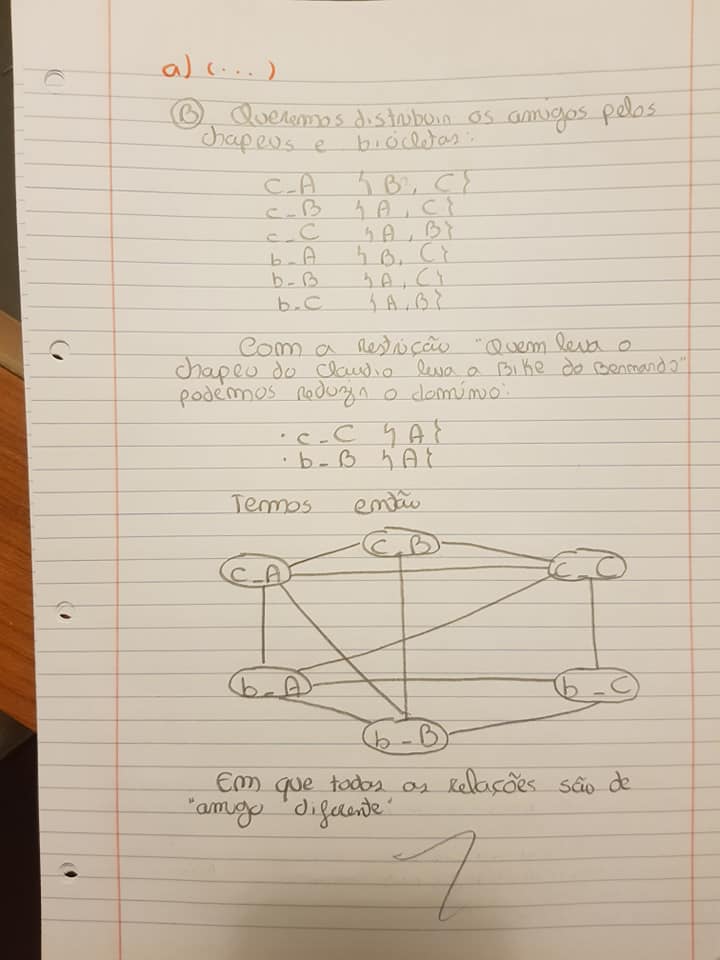 a) (...)
B Queremos distribuir os amigos pelos
chapeus e bicicletas:
c_A { B, C}
c_B { A, C}
c_C { A, B}
b_A { B, C}
b_B { A, C}
b_C { A, B}
Com a restrição "Quem leva o
chapeu do Claudio leva a Bike do Bernardo"
podemos reduzir o domínio:
· c_C { A}
· b_B { A}
Temos então
c_B
c_A c_C
b_A b_C
b_B
Em que todas as relações são de
"amigo diferente"